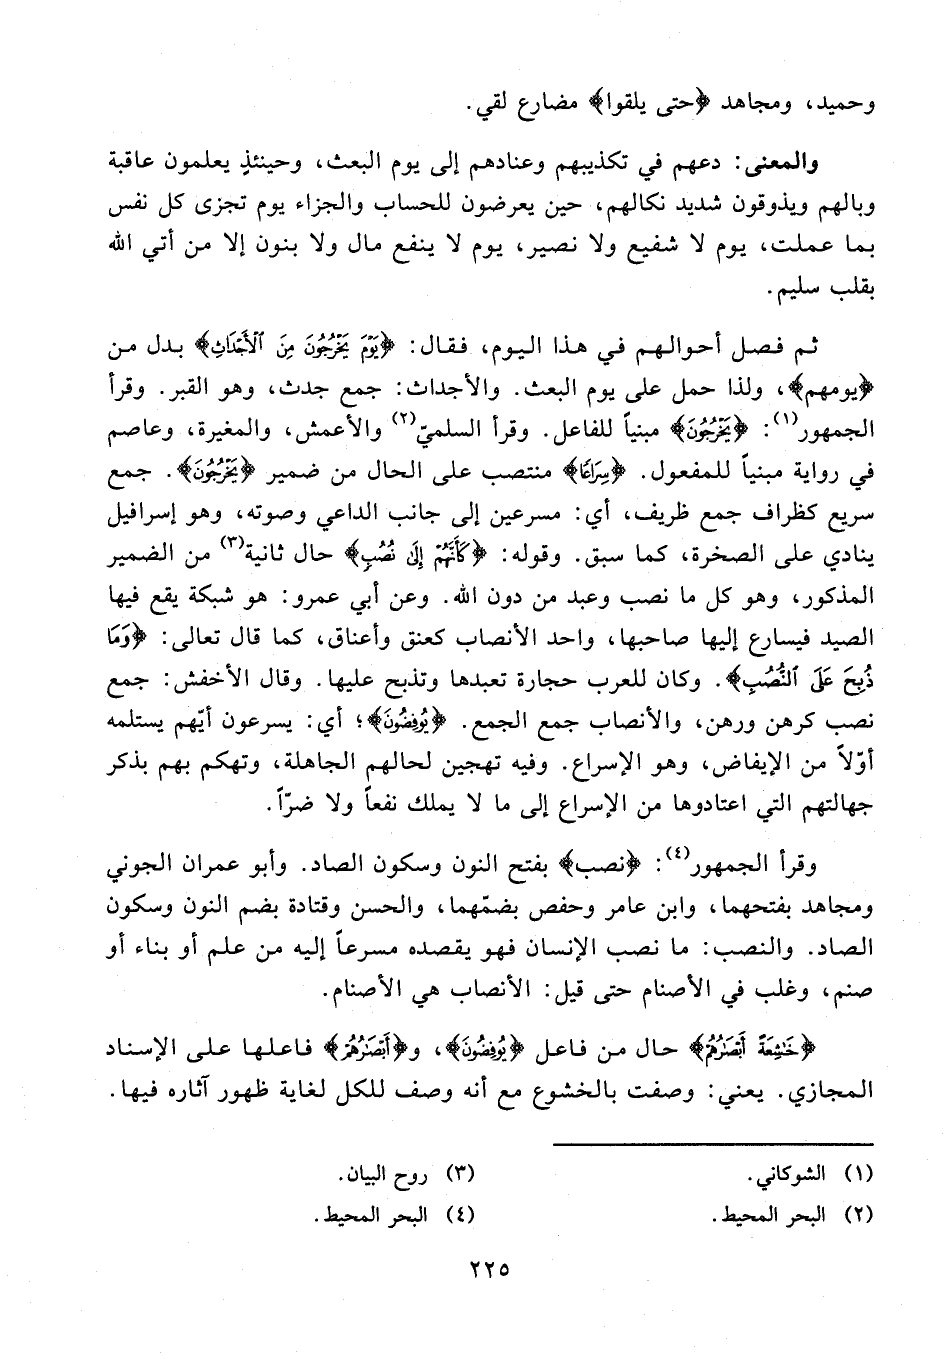 وحميد، ومجاهد ﴿حتى يلقوا﴾ مضارع لقي.
والمعنى: دعهم في تكذيبهم وعنادهم إلى يوم البعث، وحينئذٍ يعلمون عاقبة
وبالهم ويذوقون شديد نكالهم، حين يعرضون للحساب والجزاء يوم تجزى كل نفس
بما عملت، يوم لا شفيع ولا نصير، يوم لا ينفع مال ولا بنون إلا من أتي الله
بقلب سليم.
ثم فصل أحوالهم في هذا اليوم، فقال: ﴿يَوْمَ يَخْرُجُونَ مِنَ ٱلْأَجْدَاثِ﴾ بدل من
﴿يومهم﴾، ولذا حمل على يوم البعث. والأجداث: جمع جدث، وهو القبر. وقرأ
الجمهور(١): ﴿يَخْرُجُونَ﴾ مبنياً للفاعل. وقرأ السلميّ(٢) والأعمش، والمغيرة، وعاصم
في رواية مبنياً للمفعول. ﴿سِرَاعًا﴾ منتصب على الحال من ضمير ﴿يَخْرُجُونَ﴾. جمع
سريع كظراف جمع ظريف، أي: مسرعين إلى جانب الداعي وصوته، وهو إسرافيل
ينادي على الصخرة، كما سبق. وقوله: ﴿كَأَنَّهُمْ إِلَىٰ نُصُبٍ﴾ حال ثانية(٣) من الضمير
المذكور، وهو كل ما نصب وعبد من دون الله. وعن أبي عمرو: هو شبكة يقع فيها
الصيد فيسارع إليها صاحبها، واحد الأنصاب كعنق وأعناق، كما قال تعالى: ﴿وَمَا
ذُبِحَ عَلَى ٱلنُّصُبِ﴾. وكان للعرب حجارة تعبدها وتذبح عليها. وقال الأخفش: جمع
نصب كرهن ورهن، والأنصاب جمع الجمع. ﴿يُوفِضُونَ﴾؛ أي: يسرعون أيّهم يستلمه
أوّلاً من الإيفاض، وهو الإسراع. وفيه تهجين لحالهم الجاهلة، وتهكم بهم بذكر
جهالتهم التي اعتادوها من الإسراع إلى ما لا يملك نفعاً ولا ضرّاً.
وقرأ الجمهور(٤): ﴿نصب﴾ بفتح النون وسكون الصاد. وأبو عمران الجوني
ومجاهد بفتحهما، وابن عامر وحفص بضمّهما، والحسن وقتادة بضم النون وسكون
الصاد. والنصب: ما نصب الإنسان فهو يقصده مسرعاً إليه من علم أو بناء أو
صنم، وغلب في الأصنام حتى قيل: الأنصاب هي الأصنام.
﴿خَٰشِعَةً أَبْصَٰرُهُمْ﴾ حال من فاعل ﴿يُوفِضُونَ﴾، و﴿أَبْصَٰرُهُمْ﴾ فاعلها على الإسناد
المجازي. يعني: وصفت بالخشوع مع أنه وصف للكل لغاية ظهور آثاره فيها.
(١) الشوكاني.
(٢) البحر المحيط.
(٣) روح البيان.
(٤) البحر المحيط.
٢٢٥